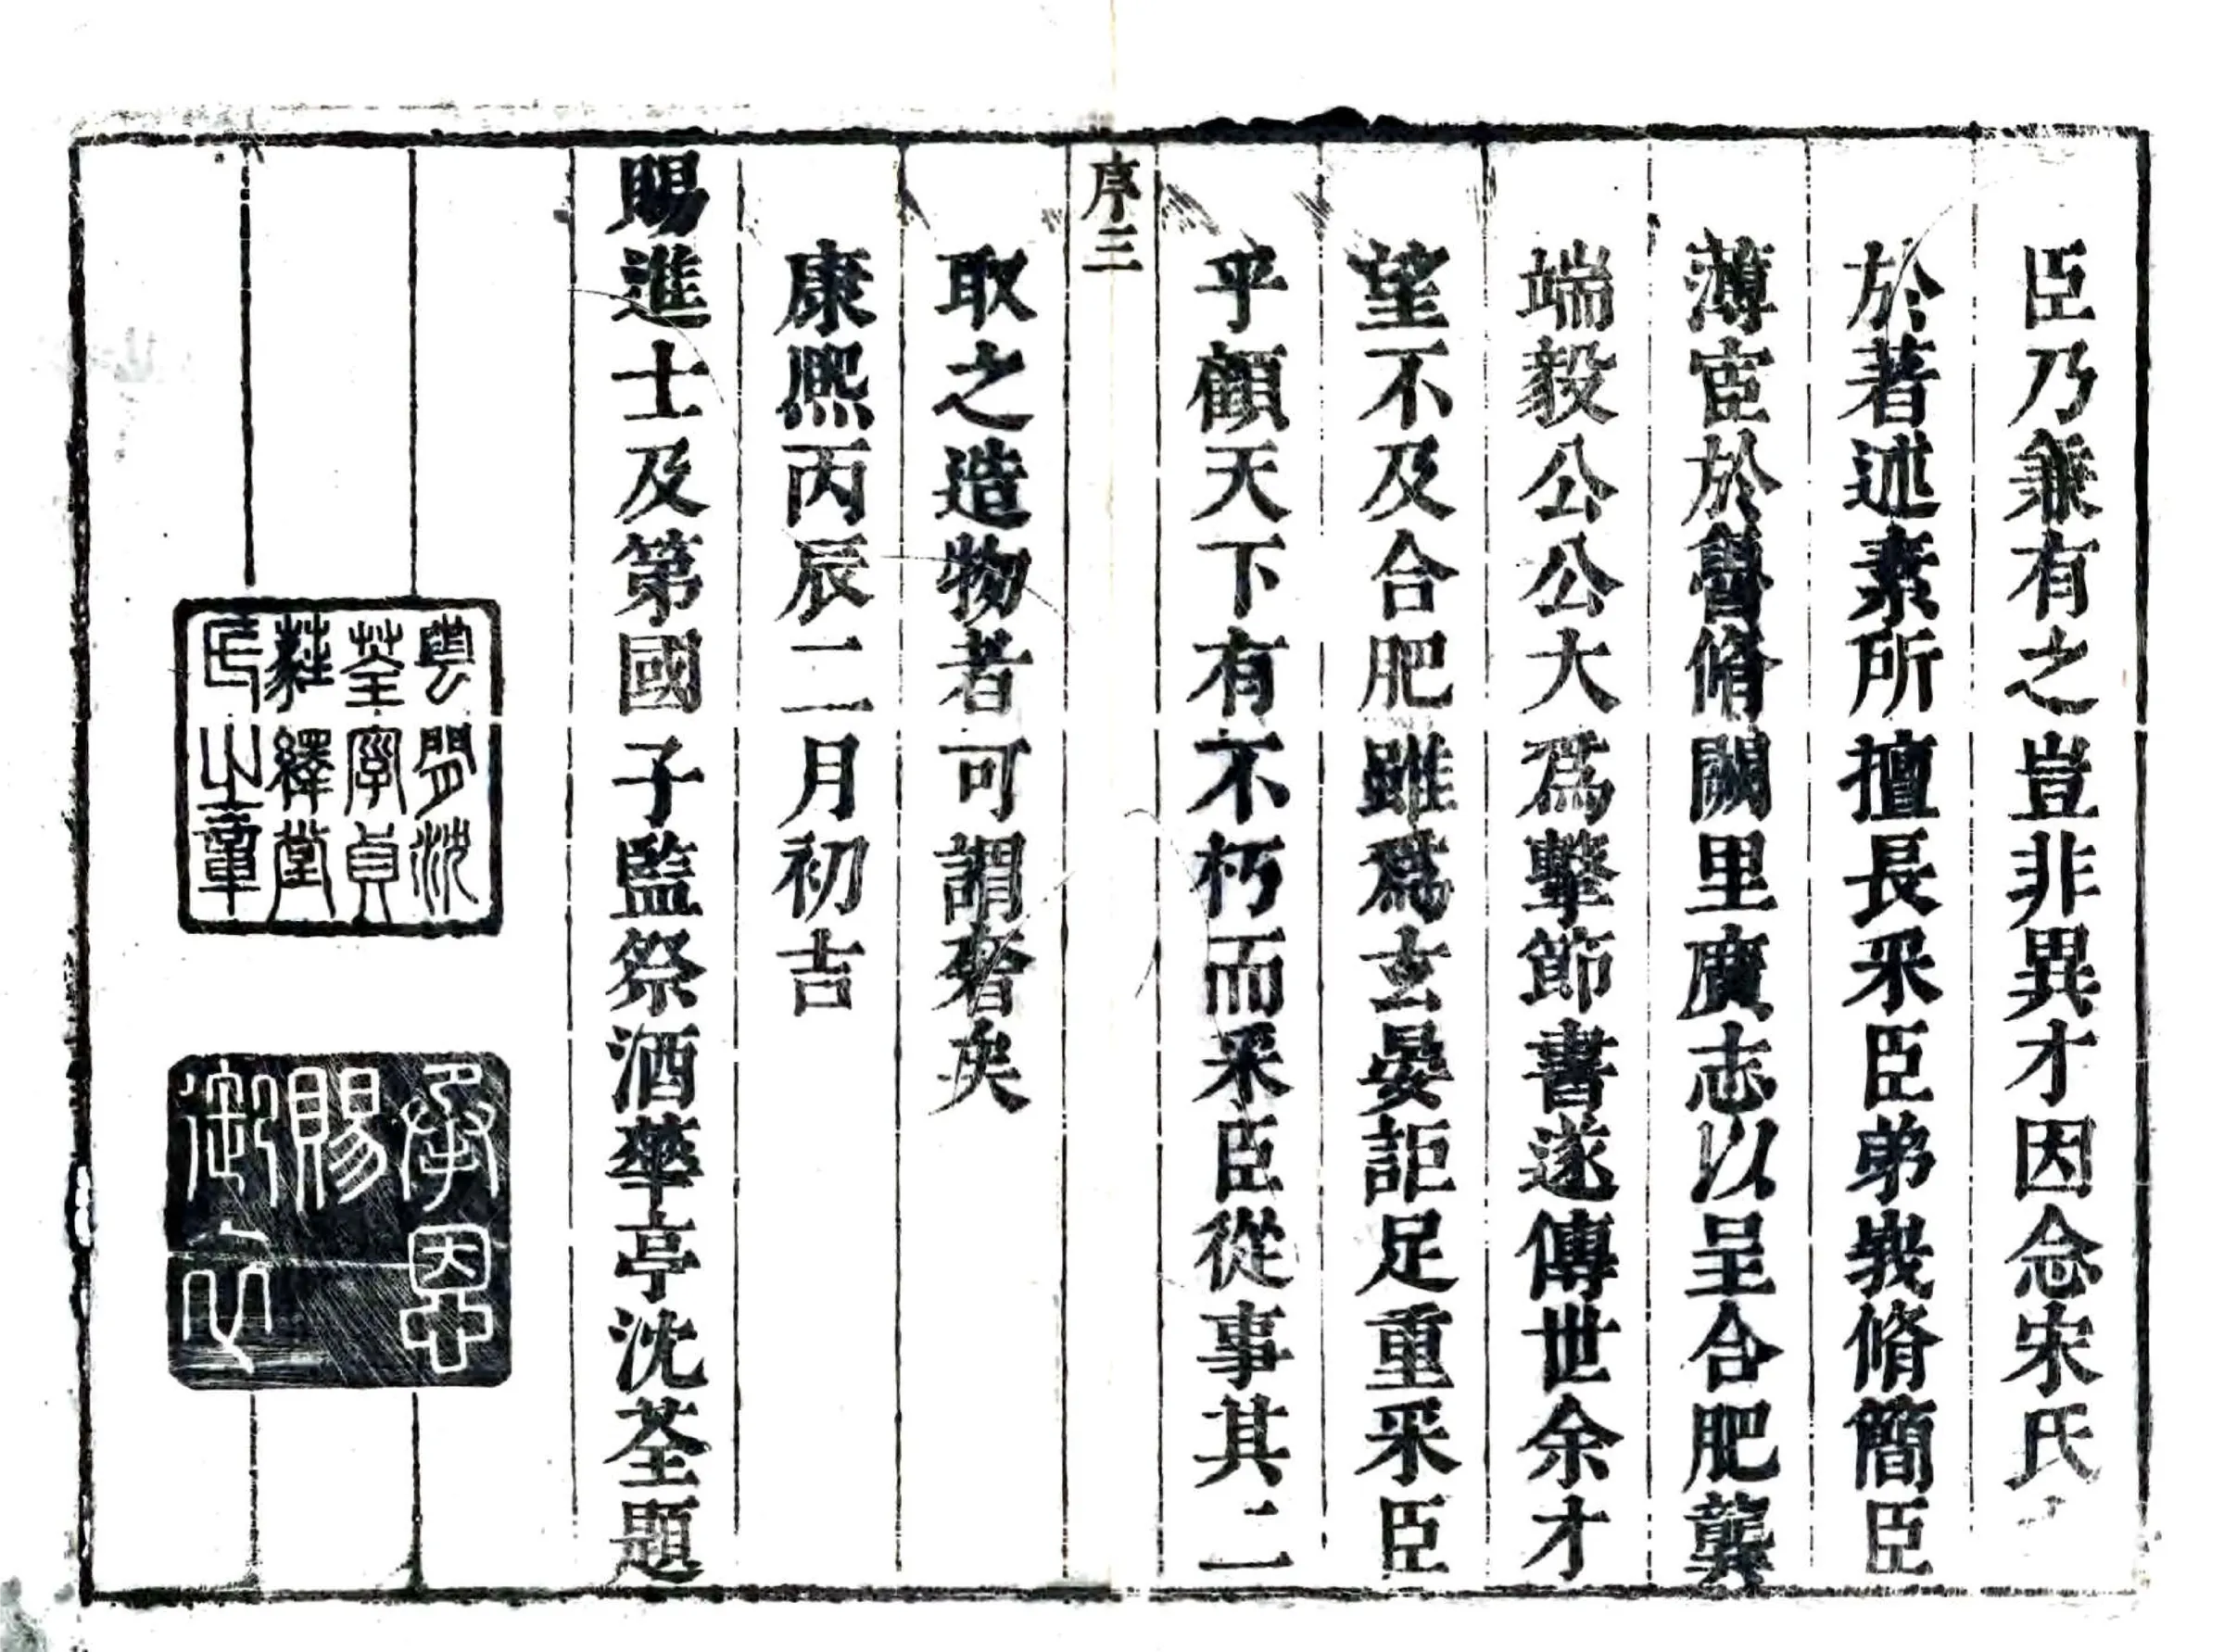 臣乃兼有之豈非異才因念宋氏
於著述素所擅長采臣弟峩脩簡臣
薄宦於魯脩闕里廣志以呈合肥龔
端毅公公大爲擊節書遂傳世余才
望不及合肥雖爲玄晏詎足重采臣
乎顧天下有不朽而采臣從事其二
序三
取之造物者可謂奢矣
康熙丙辰二月初吉
賜進士及第國子監祭酒華亭沈荃題
雲間沈
荃字貞
蕤繹堂
氏之章
承恩
賜
御衣